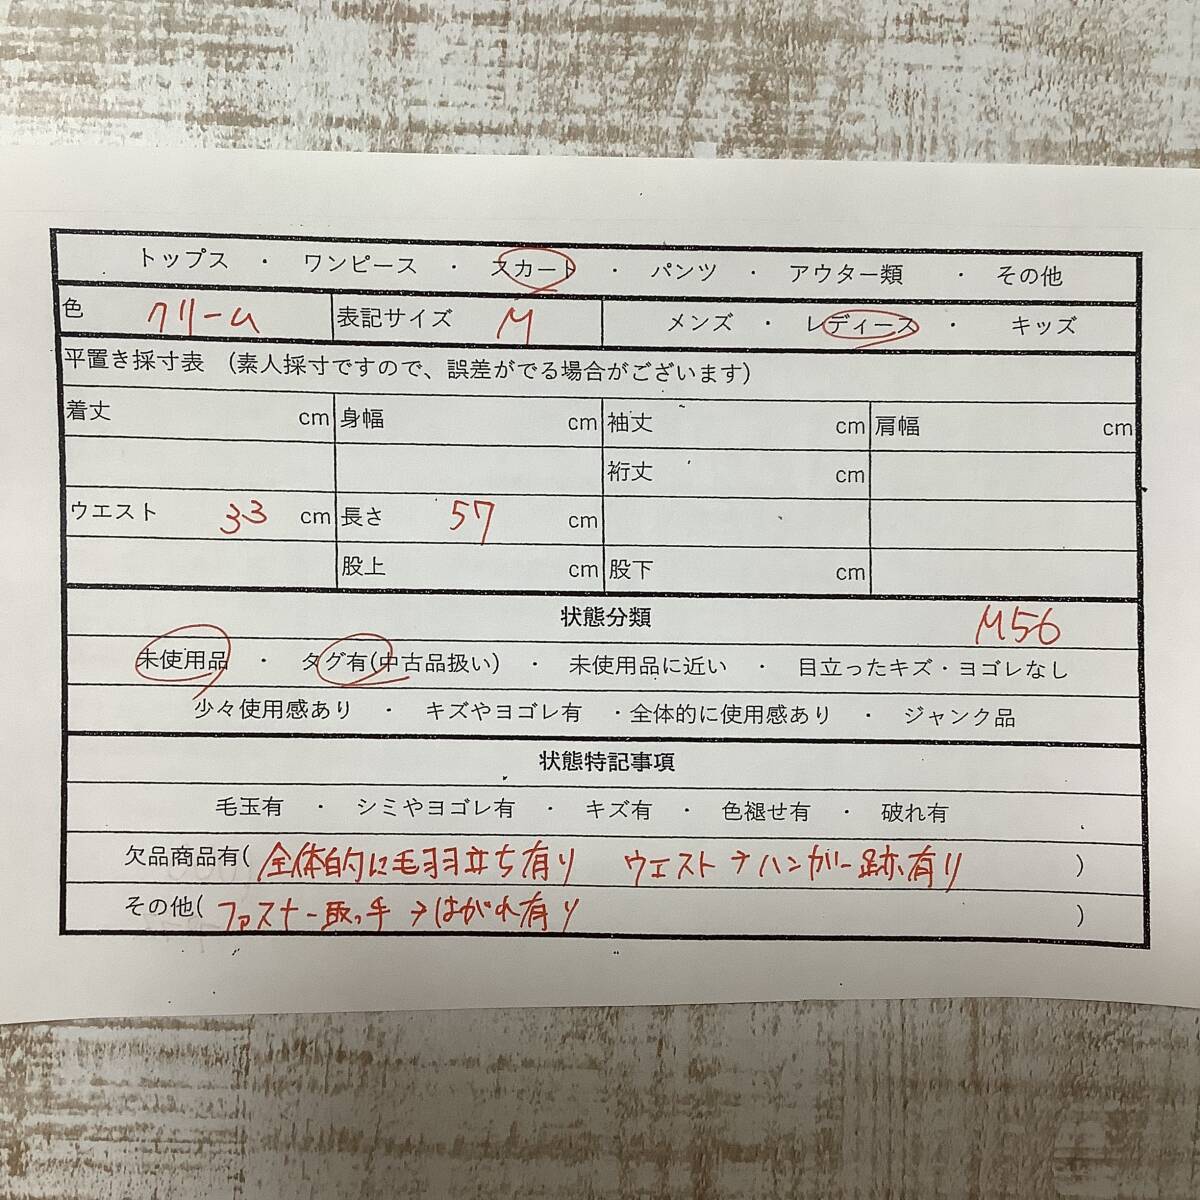 トップス ・ ワンピース ・ スカート ・ パンツ ・ アウター類 ・ その他
色 クリーム 表記サイズ M メンズ ・ レディース ・ キッズ
平置き採寸表 (素人採寸ですので、誤差がでる場合がございます)
着丈 cm 身幅 cm 袖丈 cm 肩幅 cm
裄丈 cm
ウエスト 33 cm 長さ 57 cm
股上 cm 股下 cm
状態分類 M56
未使用品 ・ タグ有(中古品扱い) ・ 未使用品に近い ・ 目立ったキズ・ヨゴレなし
少々使用感あり ・ キズやヨゴレ有 ・全体的に使用感あり ・ ジャンク品
状態特記事項
毛玉有 ・ シミやヨゴレ有 ・ キズ有 ・ 色褪せ有 ・ 破れ有
欠品商品有( 全体的に毛羽立ち有り ウエスト→ハンガー跡有り )
その他( ファスナー取っ手→はがれ有り )